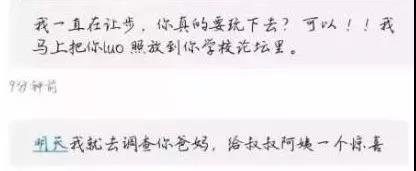 我一直在让步，你真的要玩下去？可以！！我
马上把你luo 照放到你学校论坛里。
9分钟前
明天我就去调查你爸妈，给叔叔阿姨一个惊喜